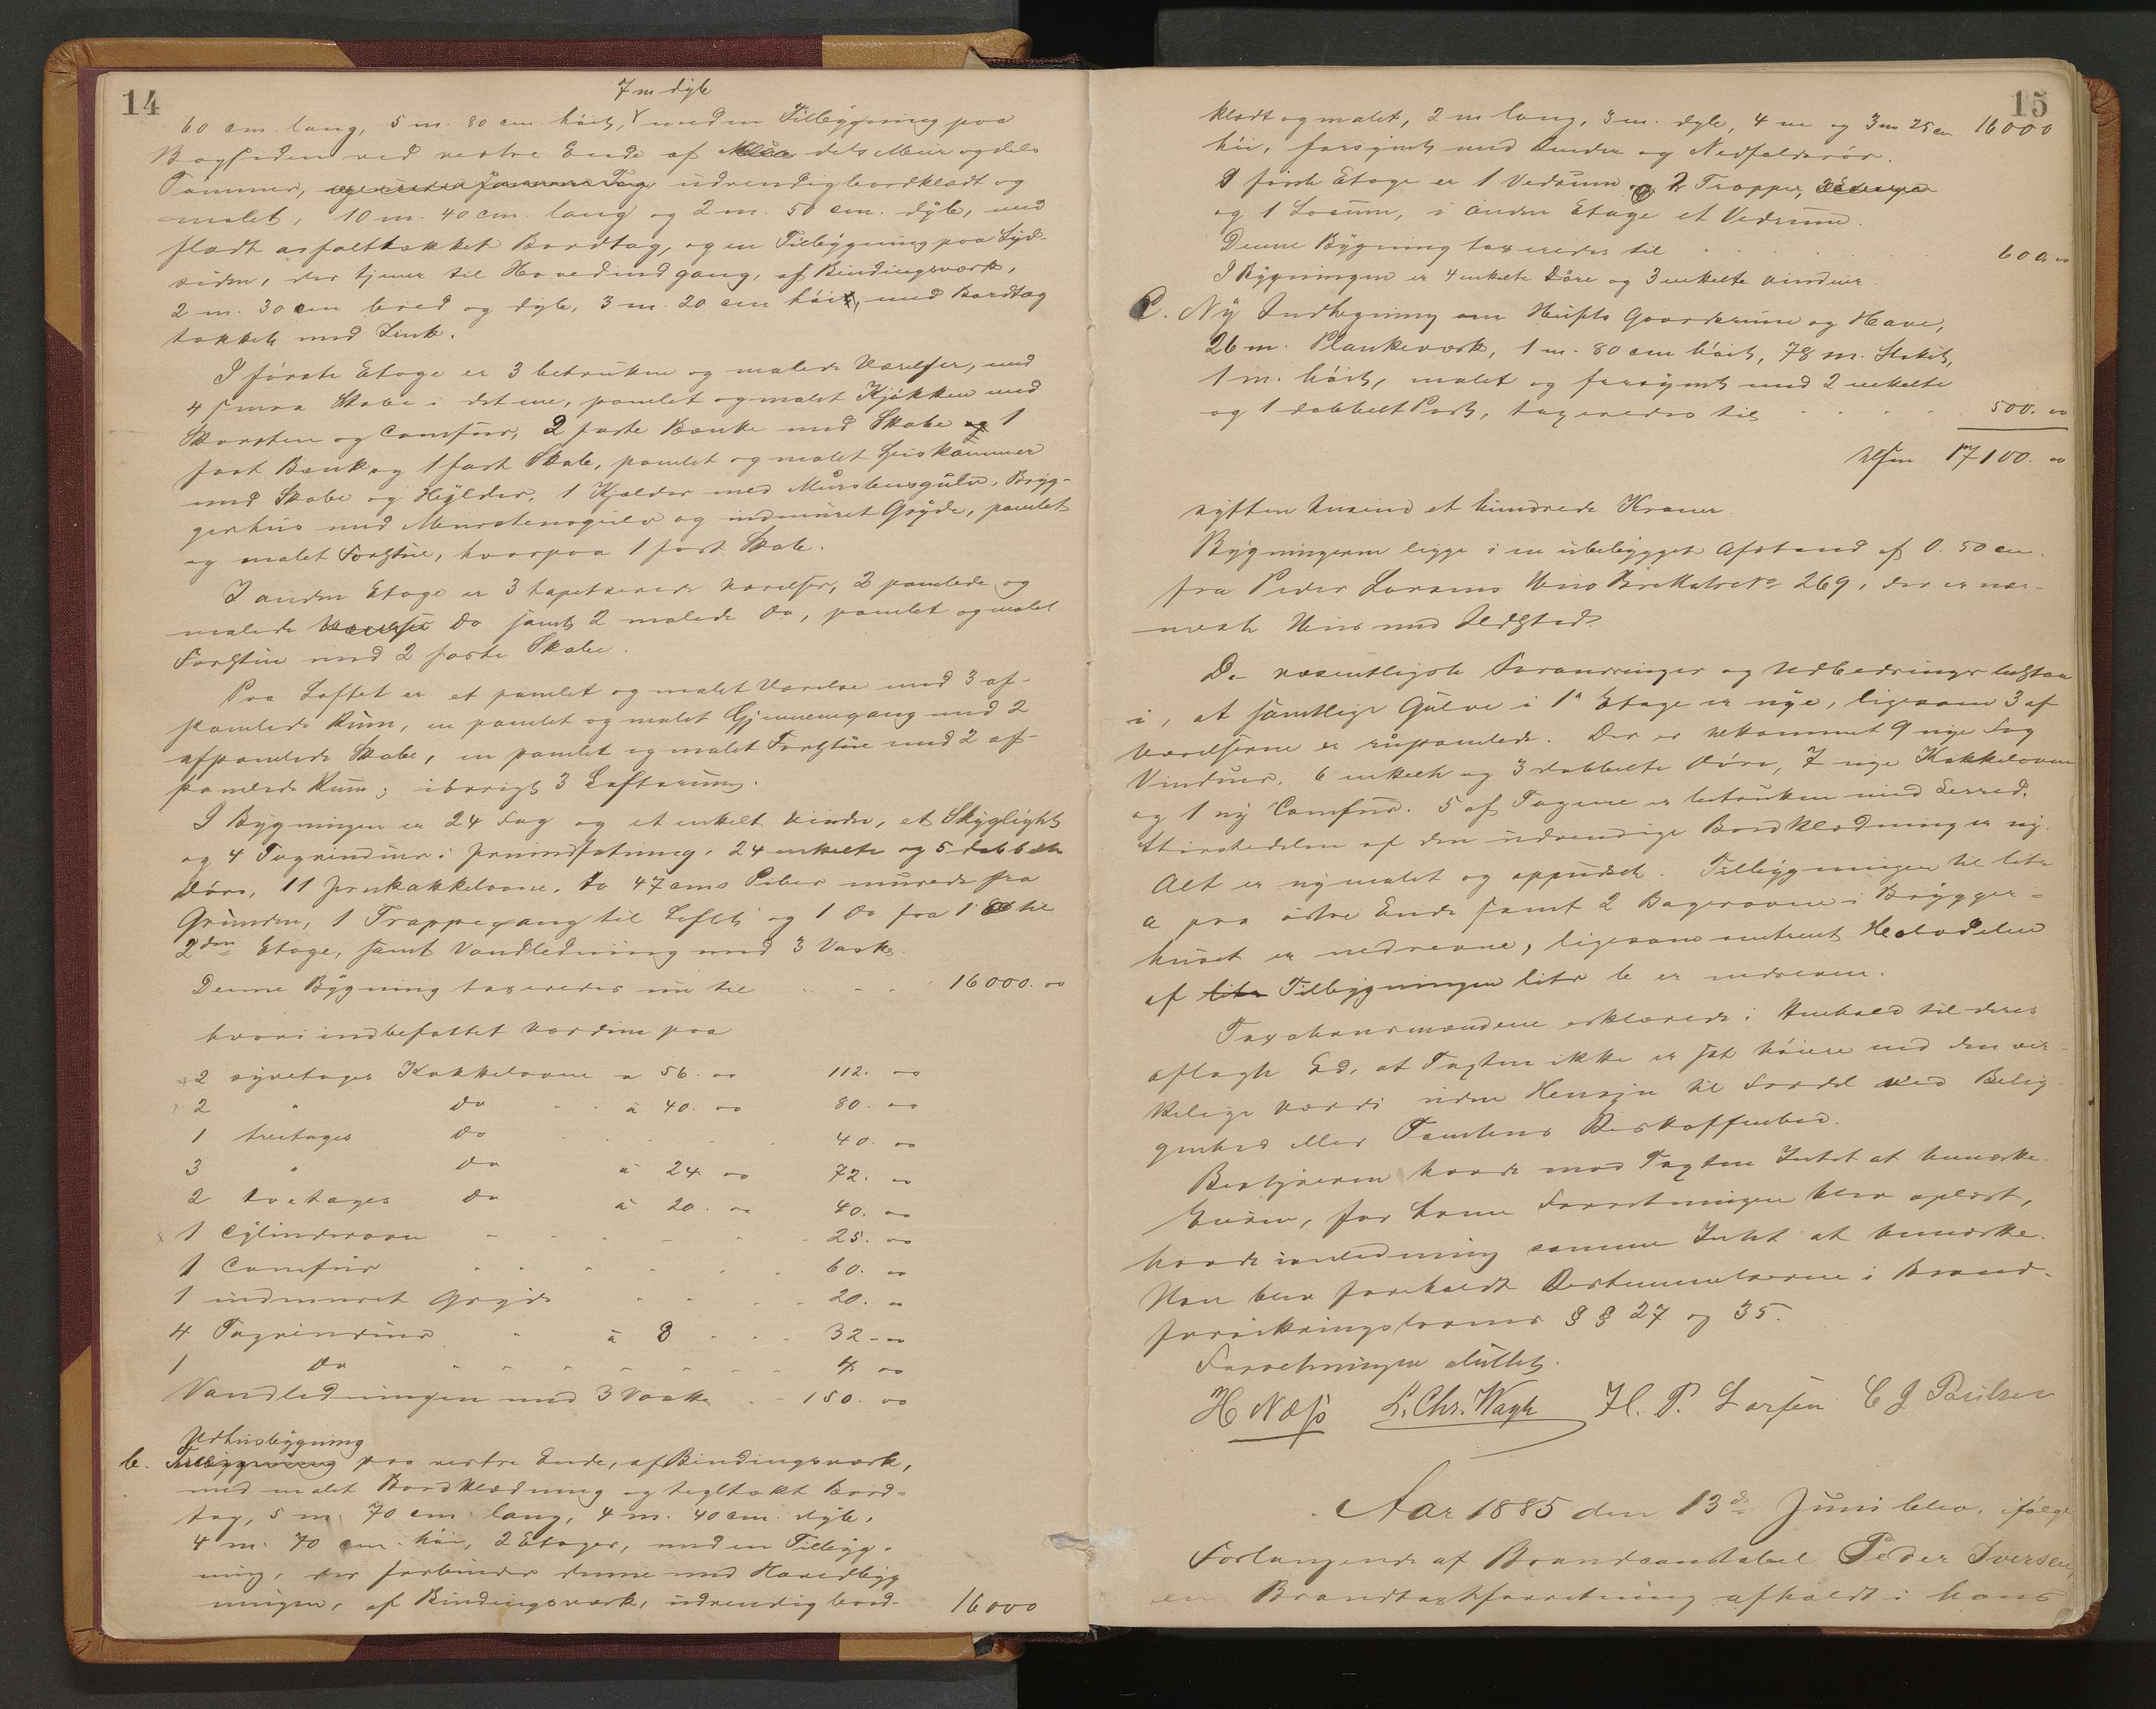 14
7 m dyb
60 cm. lang, 5 m. 80 cm. höit, med en Tilbygning paa
Bagsiden ved vestre Ende af dels Muur og dels
Tømmer, udvendig bordklædt og
malet, 10 m. 40 cm. lang og 2 m. 50 cm. dyb, med
fladt asfalttækket Bordtag, og en Tilbygning paa Syd-
siden, der tjener til Hovedindgang, af Bindingsverk,
2 m. 30 cm bred og dyb, 3 m. 20 cm höit, med Bordtag
tækket med Zink.
I første Etage er 3 betrukne og malede Værelser, med
4 smaa Skabe i det ene, panelet og malet Kjøkken med
Skorsten og Comfur, 2 faste Bænke med Skabe og 1
fast Bænk og 1 fast Skab, panelet og malet Spiskammer
med Skabe og Hylder, 1 Kjelder med Mürstensgulv, Bryg-
gerhus med Muurstensgulv og indmuret Gryde, panelet
og malet Forstue, hvorpaa 1 fast Skab.
I anden Etage er 3 tapetserede Værelser, 2 panelede og
malede Værelser Do samt 2 malede Do, panelet og malet
Forstue med 2 faste Skabe.
Paa Loftet er et panelet og malet Værelse med 3 af-
panelede Rum, en panelet og malet Gjennemgang med 2
afpanelede Skabe, en panelet og malet Forstue med 2 af-
panelede Rum; iövrigt 3 Loftsrum.
I Bygningen er 24 Fag og et enkelt Vindu, et Skyglight
og 4 Tagvinduer i Jernindfatning, 24 enkelte og 5 dobbelte
Döre, 11 Jernkakkelovne, to 47 cms Piber murede fra
Grunden, 1 Trappegang til Loftet og 1 Do fra 1 til
2den Etage, samt Vandledning med 3 Vaske.
Denne Bygning taxeredes nu til 16000. 00
hvori indbefattet Værdien paa
2 etages Kakkelovne a 56. 00 112. 00
2 " Do à 40. 00 80. 00
1 treetages Do 40. 00
3 " Do à 24. 00 72. 00
2 toetages Do à 20. 00 40. 00
1 Cylinderovn 25. 00
1 Comfur 60. 00
1 indmuret Gryde 20. 00
4 Tagvinduer à 8 32. 00
1 Do 4. 00
Vandledningen med 3 Vaske 150. 00
Udhusbygning
b. Tilbygning paa vestre Ende, af Bindingsverk,
med malet Bordklædning og tegltækt Bord-
tag, 5 m. 70 cm. lang, 4 m. 40 cm. dyb,
4 m. 70 cm. höi, 2 Etager, med en Tilbyg-
ning, der forbinder denne med Hovedbyg
ningen, af Bindingsverk, udvendig bord- 16000
15
klædt og malet, 2 m lang, 3 m. dyb, 4 m og 3 m 25 cm 16000
höi, forsynet med Render og Nedfaldsrör.
I förste Etage er 1 Vedrum og 2 Trapper,
og 1 Locum, i anden Etage et Vedrum.
Denne Bygning taxeredes til 600. 00
I Bygningen er 4 enkelte Döre og 3 enkelte Vinduer.
C. Ny Indhegning om Husets Gaardsrum og Have,
26 m. Plankeverk, 1 m. 80 cm höit, 78 m. Stakit,
1 m. höit, malet og forsynet med 2 enkelte
og 1 dobbelt Port, taxeredes til 500. 00
Tilsm 17100. 00
sytten tusind et hundrede Kroner.
Bygningerne ligge i en ubebygget Afstand af 0. 50 cm.
fra Peder Larsens Hus Br. Katr. No 269, der er nær-
meste Hus med Ildsted.
De væsentligste Forandringer og Udbedringer bestaa
i, at samtlige Gulve i 1ste Etage er nye, ligesom 3 af
Værelserne er nypanelede. Der er tilkommet 9 nye Fag
Vinduer, 6 enkelte og 3 dobbelte Döre, 7 nye Kakkelovne
og 1 ny Comfur. 5 af Tagene er betrukne med Lerred.
Störstedelen af den udvendige Bordklædning er ny.
Alt er nymalet og oppudset. Tilbygningen til litr
a paa östre Ende samt 2 Bagerovne i Brygger-
huset er nedrevne, ligesom omtrent Halvdelen
af litr Tilbygningen litr b er nedreven.
Taxationsmændene erklærede i Henhold til deres
aflagte Ed, at Taxten ikke er sat höiere end den vir-
kelige Værdi uden Hensyn til Fordel ved Belig-
genhed eller Tomtens Beskaffenhed.
Bestyreren havde mod Taxten Intet at bemærke.
Eieren, for hvem Forretningen blev oplæst,
havde i anledning samme Intet at bemærke.
Han blev foreholdt Bestemmelserne i Brand-
forsikringslovens § § 27 og 35.
Forretningen sluttet.
H Næss L. Chr. Wagle H. P. Larsen C J Paulsen
Aar 1885 den 13de Juni blev, ifølge
Forlangende af Brandconstabel Peder Iversen,
en Brandtaxtforretning afholdt i hans